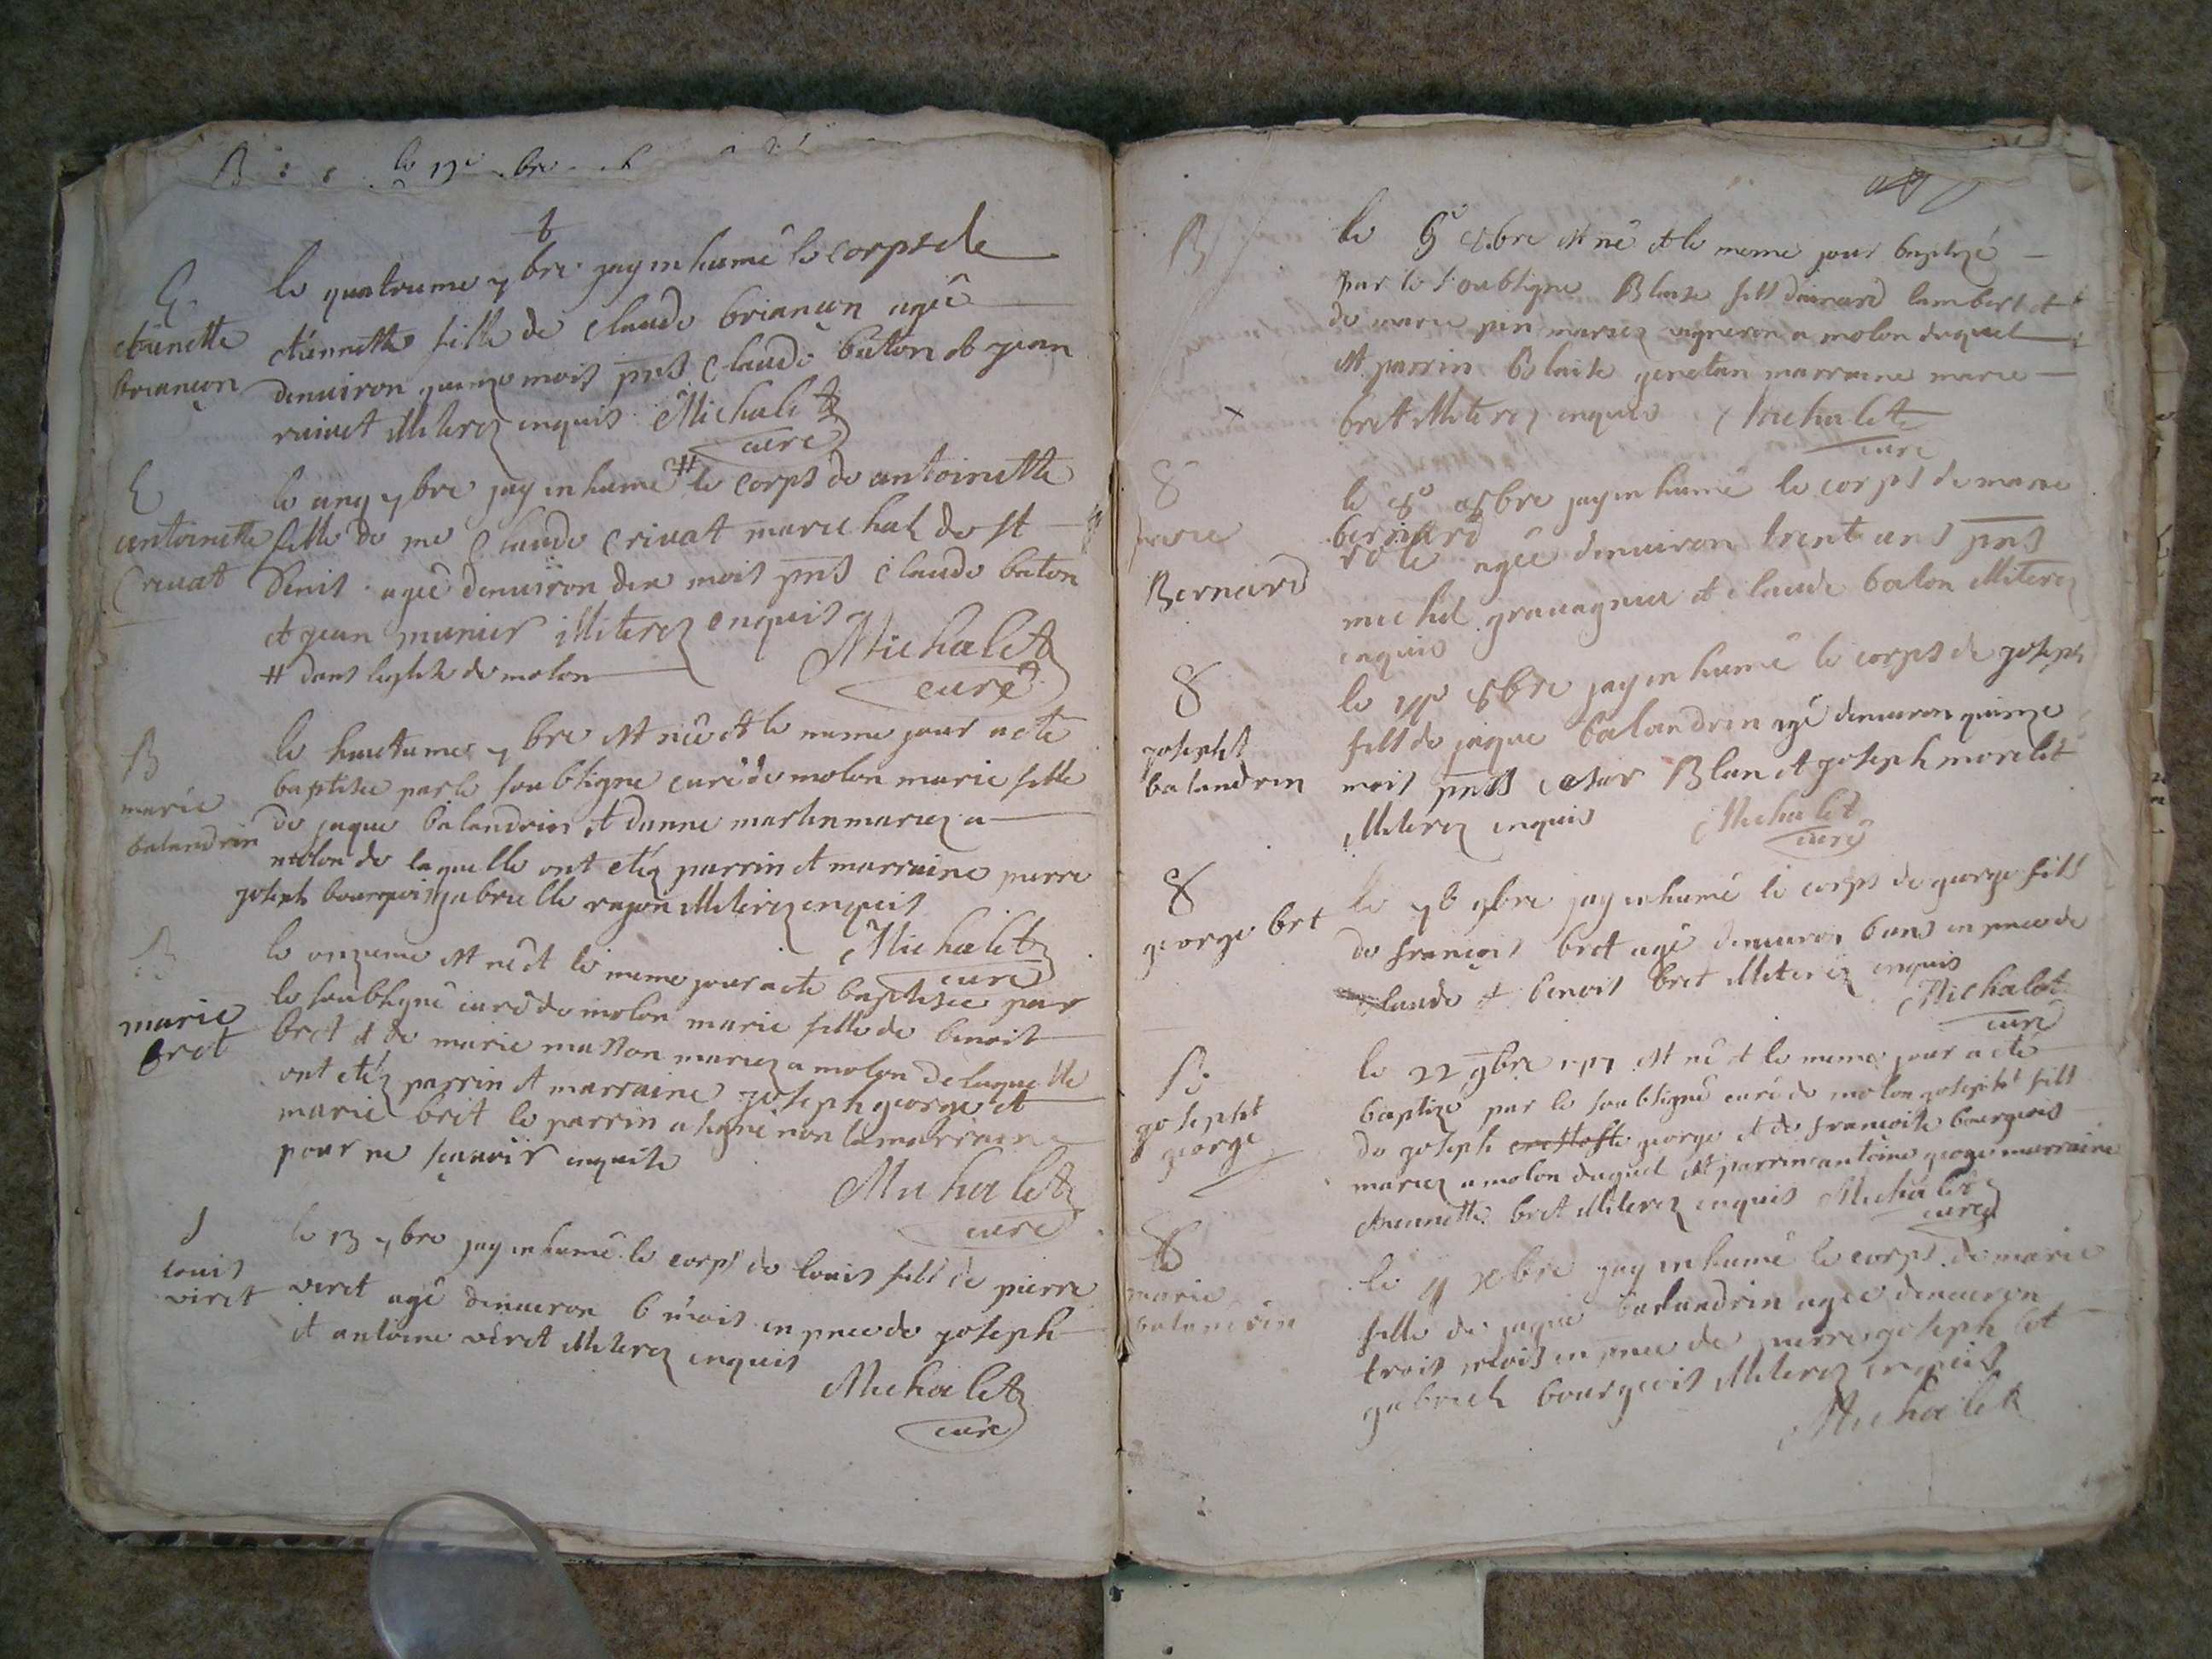 le quatrieme 7bre jay inhumé le corps de
etiennette fille de claude briançon agée
denuiron quinze mois pns claude baton et jean
illiterez enquis Michalet
curé
etiennette
briançon
le cinq 7bre jay inhumé # le corps de antoinette
fille de me claude criuat marechal de st
denis agée denuiron dix mois pns claude baton
et jean munier illiterez enquis
# dans leglise de molon
Michalet
curé
antoinette
criuat
le huitieme 7bre est née et le meme jour a eté
baptisée par le soubsigne curé de molon marie fille
de jaque balandrin et danne martin mariez a
molon de laquelle ont etéz parrin et marraine pierre
joseph bourgois gabrielle rajon illiterez enquis
Michalet
curé
B
marie
balandrin
le onzieme est née et le meme jour a eté baptisée par
le soubsigné curé de molon marie fille de benoit
bret et de marie masson mariez a molon de laquelle
ont etéz parrin et marraine joseph george et
marie bret le parrin a signé non la marraine
pour ne sçauoir enquise
Michalet
curé
B
marie
bret
le 13 7bre jay inhumé le corps de louis fils de pierre
viret agé denuiron 6 mois en pnce de joseph
et antoine viret illiterez enquis
Michalet
curé
louis
viret
B
le 6 8bre est né et le meme jour baptizé
par le soubsigne Blaise fils lambert et
de marie pin mariez vigneron a molon duquel
est parrin Blaise genetan marraine marie
bret illiterez enquis Michalet
curé
le 8e 8bre jay inhumé le corps de marie
bernard
agée denuiron trente ans pns
michel et claude baton illiterez
enquis
8
marie
Bernard
le 8bre jay inhumé le corps de joseph
fils de jaque balandrin agé denuiron quinze
mois pns Blan et joseph morelet
illiterez enquis Michalet
curé
8
josepht
balandrin
le 9bre jay inhumé le corps de george fils
de françois bret agé denuiron 6 ans en pnce de
claude et benoit bret illiterez enquis
Michalet
curé
8
george bret
le 22 9bre 1717 est né et le meme jour a eté
baptizé par le soubsigné curé de molon josepht fils
de joseph george et de francoise bourgois
mariez a molon duquel est parrin antoine george marraine
etiennette bret illiterez enquis Michalet
curé
B
josepht
george
le xbre jay inhumé le corps de marie
fille de jaque balandrin agée denuiron
trois mois en pnce de pierre joseph et
gabriel bourgeois illiterez enquis
Michalet
8
marie
balandrin